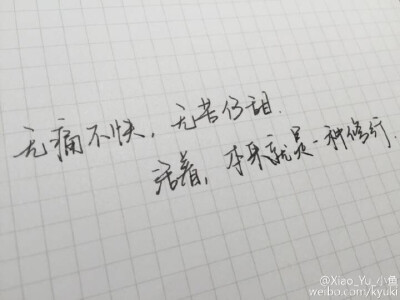 无痛不快，无苦何甜.
活着，本身就是一种修行.
@Xiao_Yu_小鱼
weibo.com/kyuki